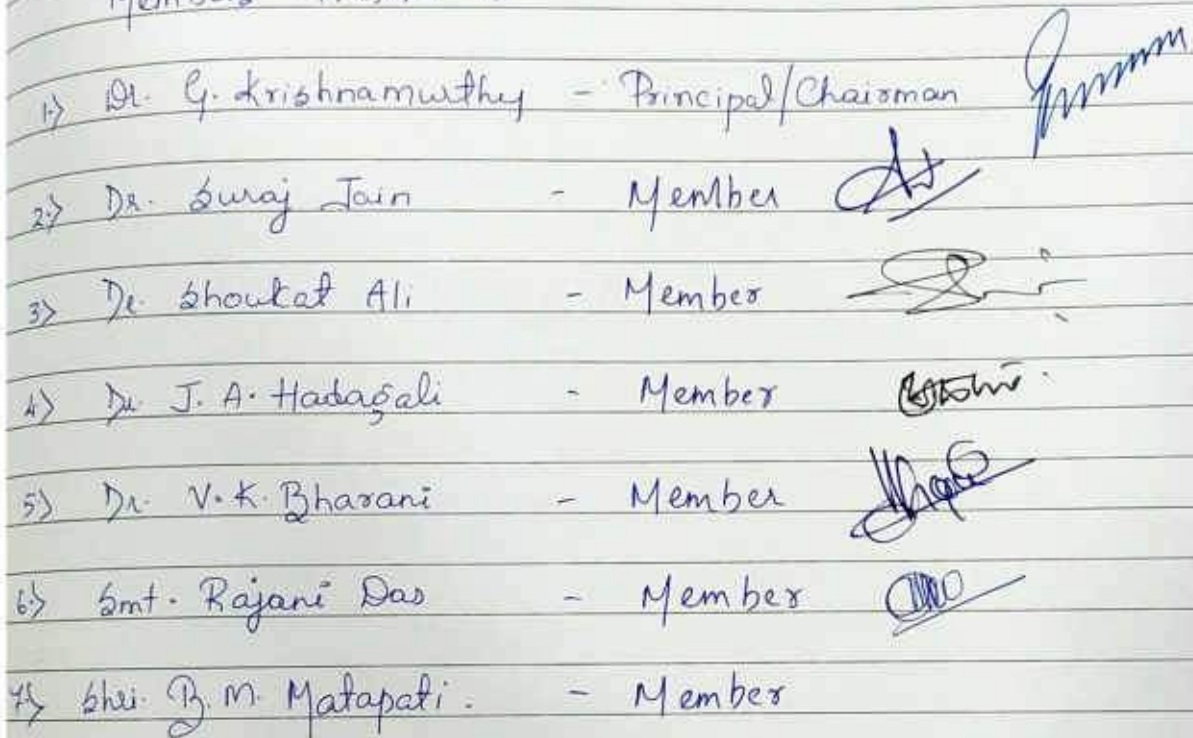 Members
1.) Dr. G. Krishnamurthy - Principal/Chairman
2.) Dr. Suraj Jain - Member
3) Dr. Shoukat Ali - Member
4) Dr. J. A. Hadagali - Member
5) Dr. V. K. Bharani - Member
6.) Smt. Rajani Das - Member
7) Shri. B. M. Matapati. - Member